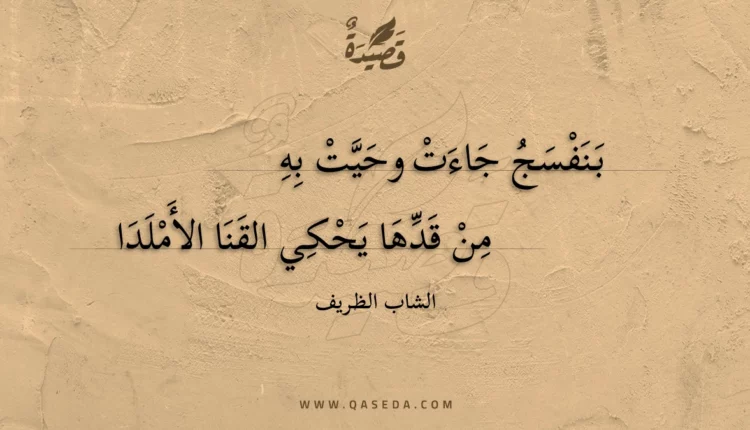 قصيدة
بَنَفْسَجُ جَاءَتْ وحَيَّتْ بِهِ
مِنْ قَدِّهَا يَحْكِي القَنَا الأَمْلَدَا
الشاب الظريف
WWW.QASEDA.COM